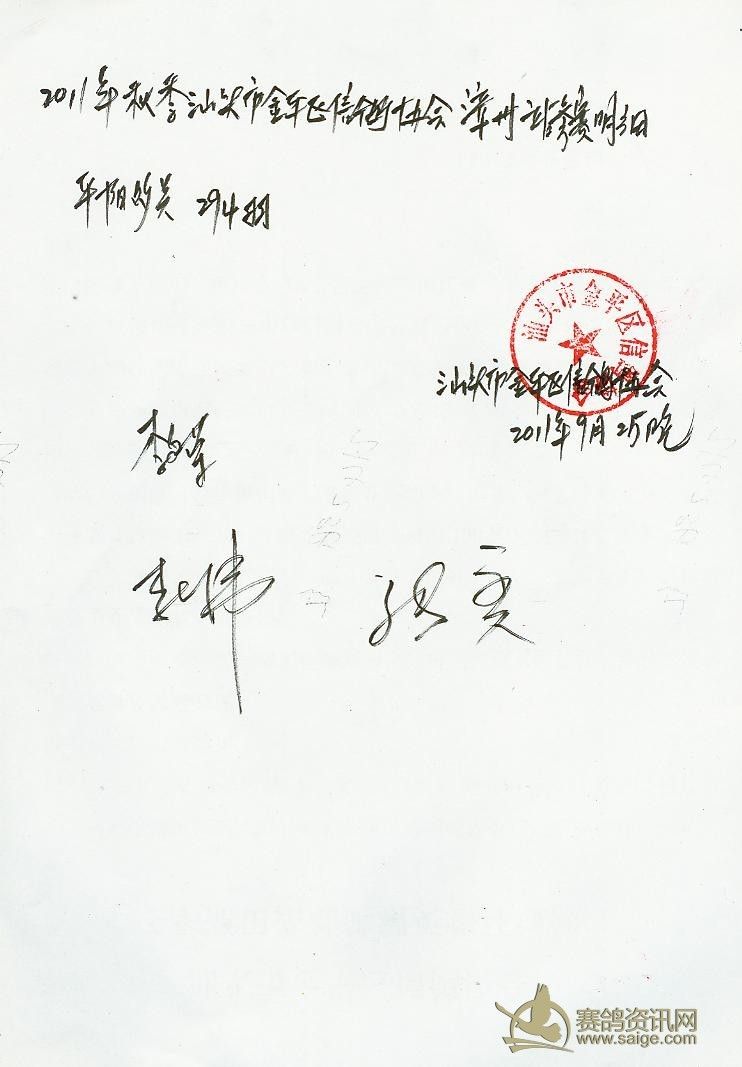 2011年秋季汕头市金平区信鸽协会漳州站参赛明细
平阳 294羽
汕头市金平区信
汕头市金平区信鸽协会
2011年9月25晚
李
赛鸽资讯网
www.saige.com